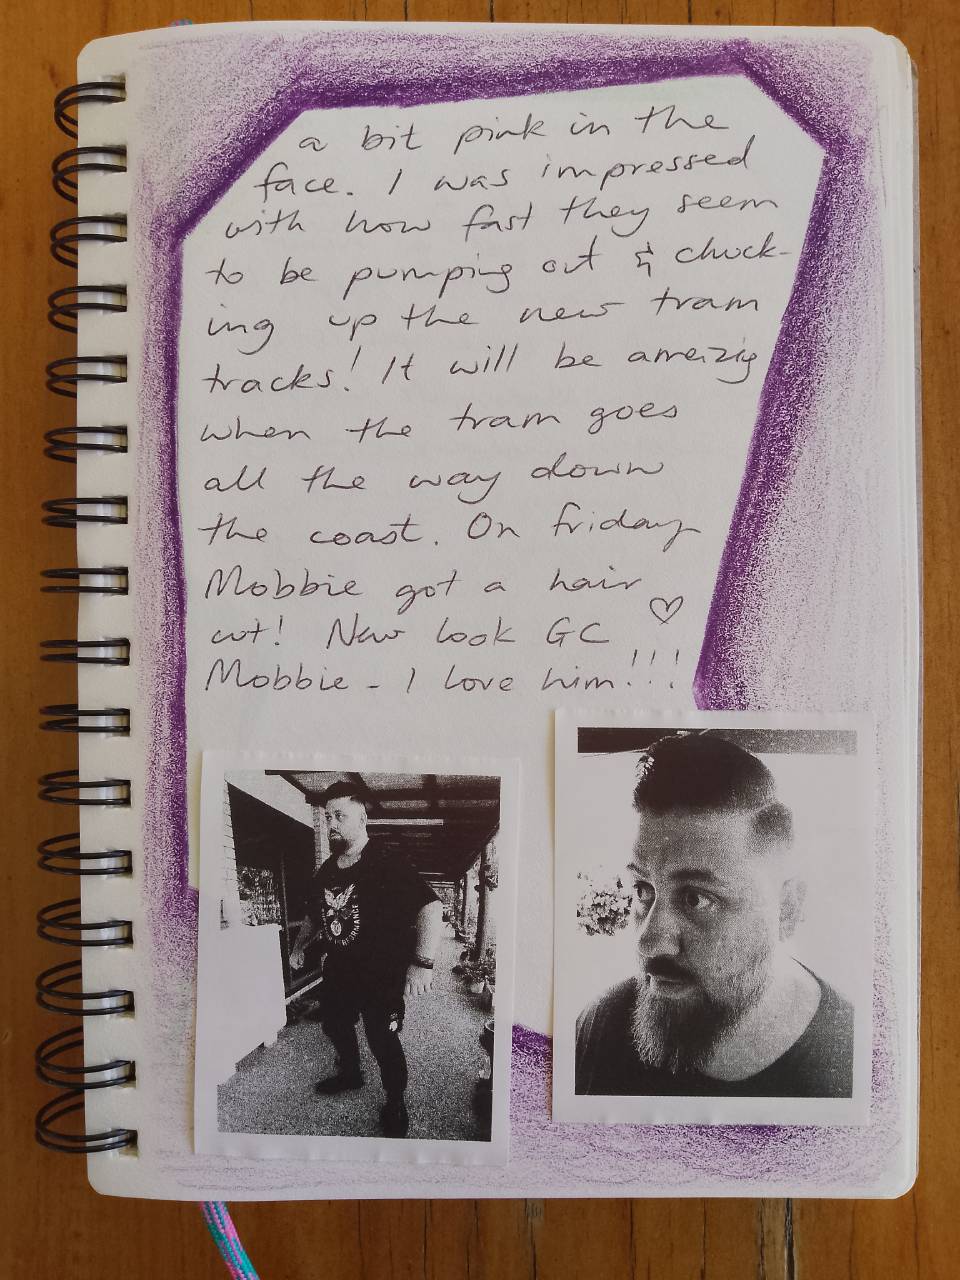 a bit pink in the
face. I was impressed
with how fast they seem
to be pumping out & chuck-
ing up the new tram
tracks! It will be ameizig
when the tram goes
all the way down
the coast. On friday
Mobbie got a hair
cut! New look GC
Mobbie - I love him!!!